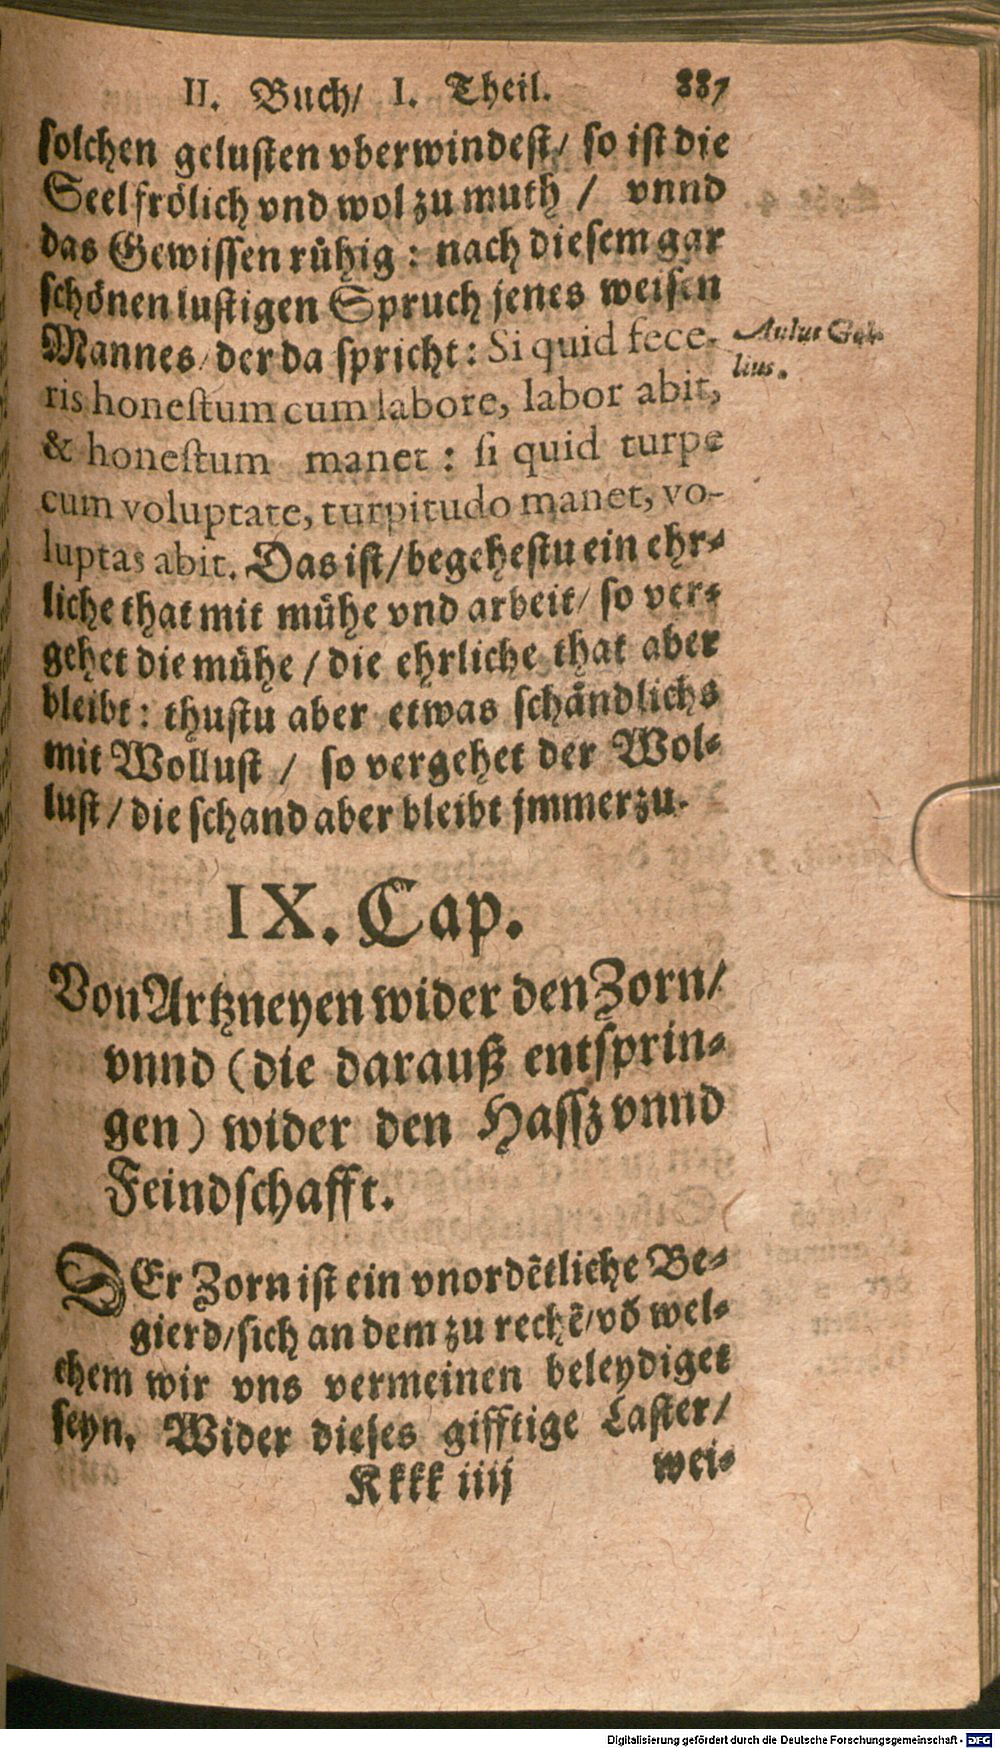 II. Buch/ I. Theil. 887
solchen gelusten vberwindest/ so ist die
Seel frölich vnd wol zu muth / vnnd
das Gewissen rühig : nach diesem gar
schönen lustigen Spruch jenes weisen
Mannes/ der da spricht : Si quid fece-
Aulus Gel-
lius.
ris honestum cum labore, labor abit,
& honestum manet : si quid turpe
cum voluptate, turpitudo manet, vo-
luptas abit. Das ist/ begehestu ein ehr-
liche that mit mühe vnd arbeit/ so ver-
gehet die mühe / die ehrliche that aber
bleibt : thustu aber etwas schändlichs
mit Wollust / so vergehet der Wol-
lust / die schand aber bleibt jmmerzu.
IX. Cap.
Von Artzneyen wider den Zorn/
vnnd (die darauß entsprin-
gen) wider den Hassz vnnd
Feindschafft.
DEr Zorn ist ein vnordẽtliche Be-
gierd/ sich an dem zu rechẽ/ võ wel-
chem wir vns vermeinen beleydiget
seyn. Wider dieses gifftige Laster/
Kkkk iiij wei-
Digitalisierung gefördert durch die Deutsche Forschungsgemeinschaft - DFG